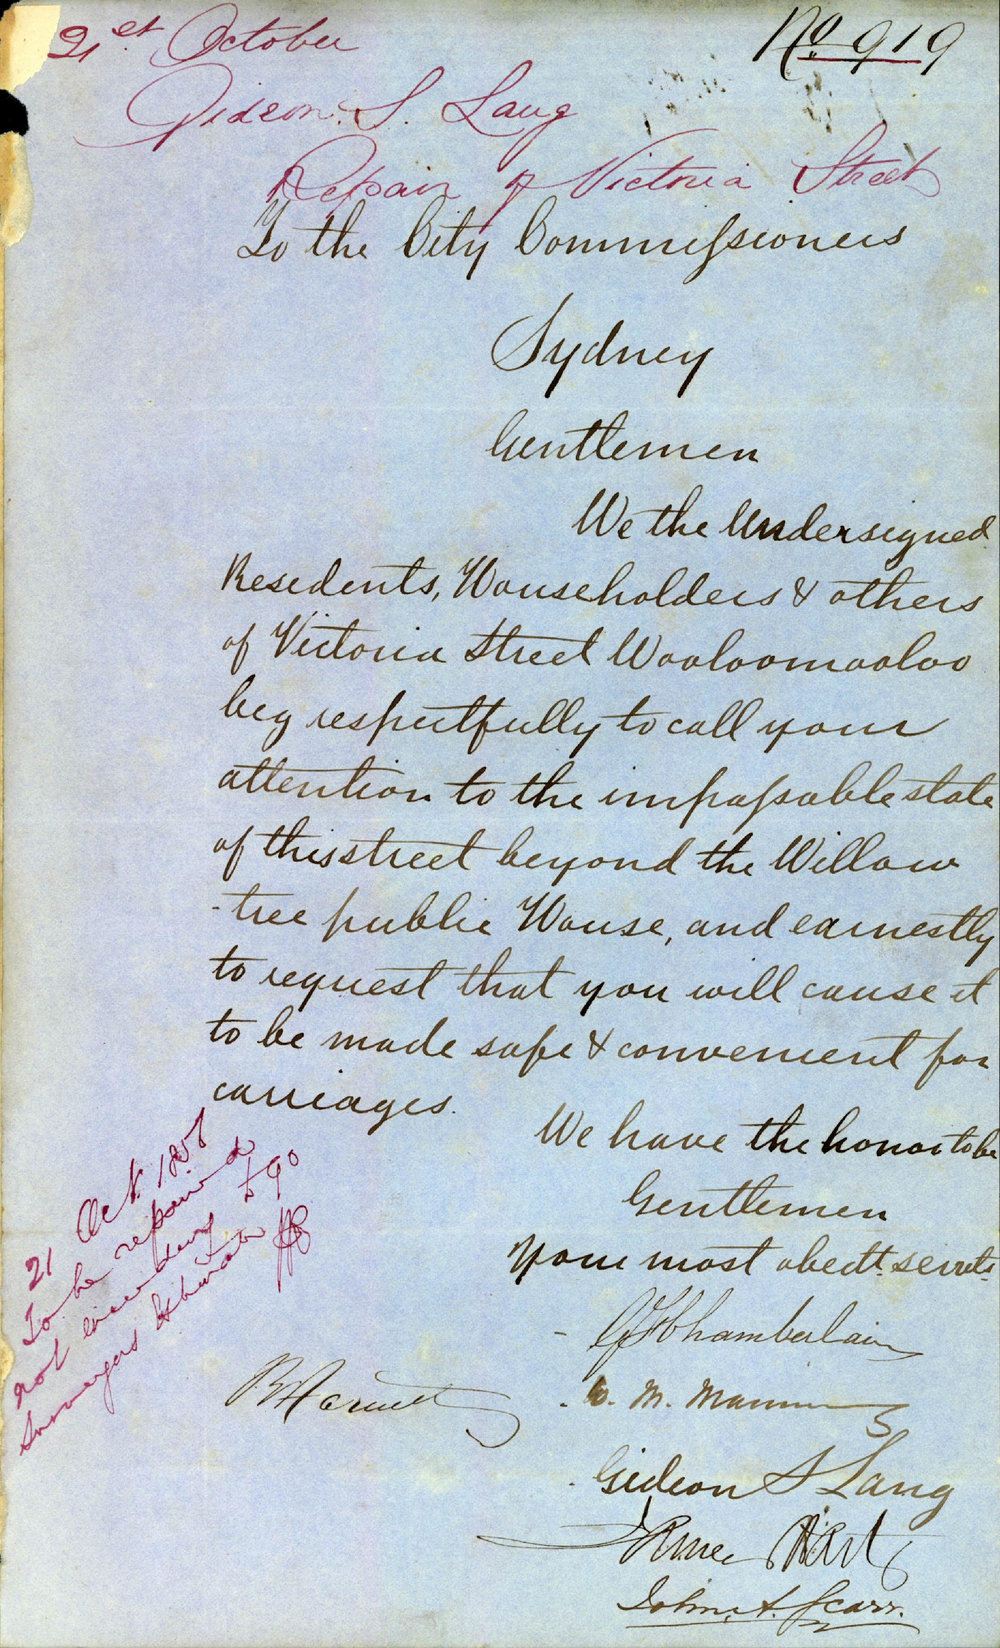 21st October
No 919
Gideon. S. Lang
Repair of Victoria Street
To the City Commissioners
Sydney
Gentlemen
We the Undersigned
Residents, Householders & others
of Victoria Street Wooloomooloo
beg respectfully to call your
attention to the impassable state
of this street beyond the Willow
-tree public House, and earnestly
to request that you will cause it
to be made safe & convenient for
carriages.
We have the honor to be
Gentlemen
Your most obedt. servts.
Chamberlain
W. M. Manning
Gideon S Lang
John. A. Scarr.
21 Oct. 185
To be repaired
not exceeding £90
Surveyors Estimate